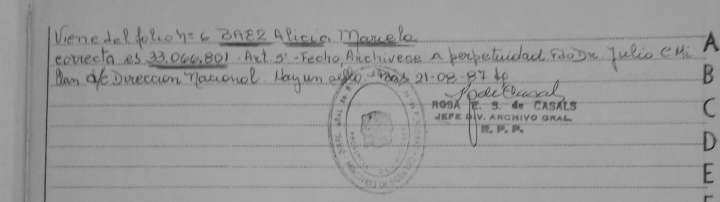 Viene del folio nº 6 BAEZ Alicia Manuela
correcta es 33.066.801 - Art. 5º - Fecho, Archívese a perpetuidad. Fdo Dr. Julio C Mi
llan a/c Dirección Nacional. Hay un sello. 21-08-87
ROSA E. S. de CASALS
JEFE DIV. ARCHIVO GRAL.
R. P. P.
A
B
C
D
E